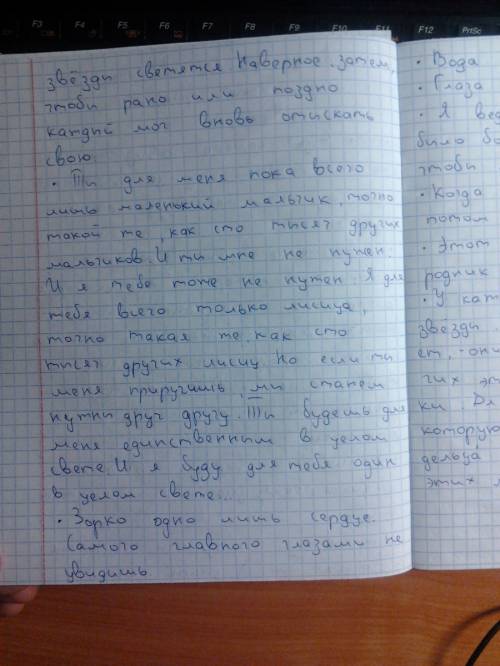 F3 F4 F5 F6 F7 F8 F9 F10 F11 F12 PrtSc
звёзди светятся Наверное затем,
чтоби рано или поздно
каждий мог вновь отискать
свою.
· Ти для меня пока всего
лишь маленький мальчик, точно
такой же, как сто тисяч других
мальчиков. И ти мне не нужен.
И я тебе тоже не нужен. Я для
тебя всего только лисица,
точно такая же, как сто
тисяч других лисиц. Но если ти
меня приручишь, ми станем
нужни друг другу. Ти будешь для
меня единственним в целом
свете. И я буду для тебя один
в целом свете...
· Зорко одно лишь сердце.
Самого главного глазами не
увидишь.
· Вода
· Глаза
· Я вед
било бо
чтоби
· Когда
потом
· Этот
родник
· У каж
звезди
ет,-они
гих эт
ки. Дл
которую
дельца
этих л